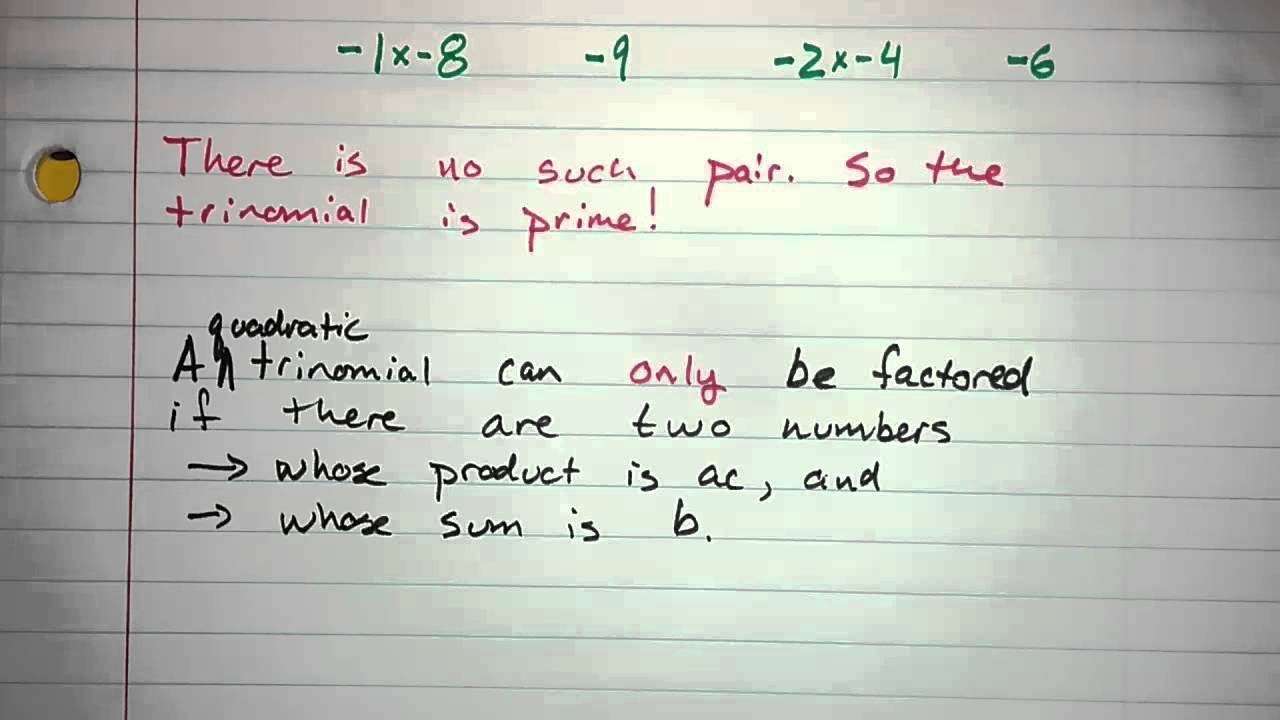 -1x-8 -9 -2x-4 -6
There is no such pair. So the
trinomial is prime!
quadratic
A trinomial can only be factored
if there are two numbers
→ whose product is ac, and
→ whose sum is b.